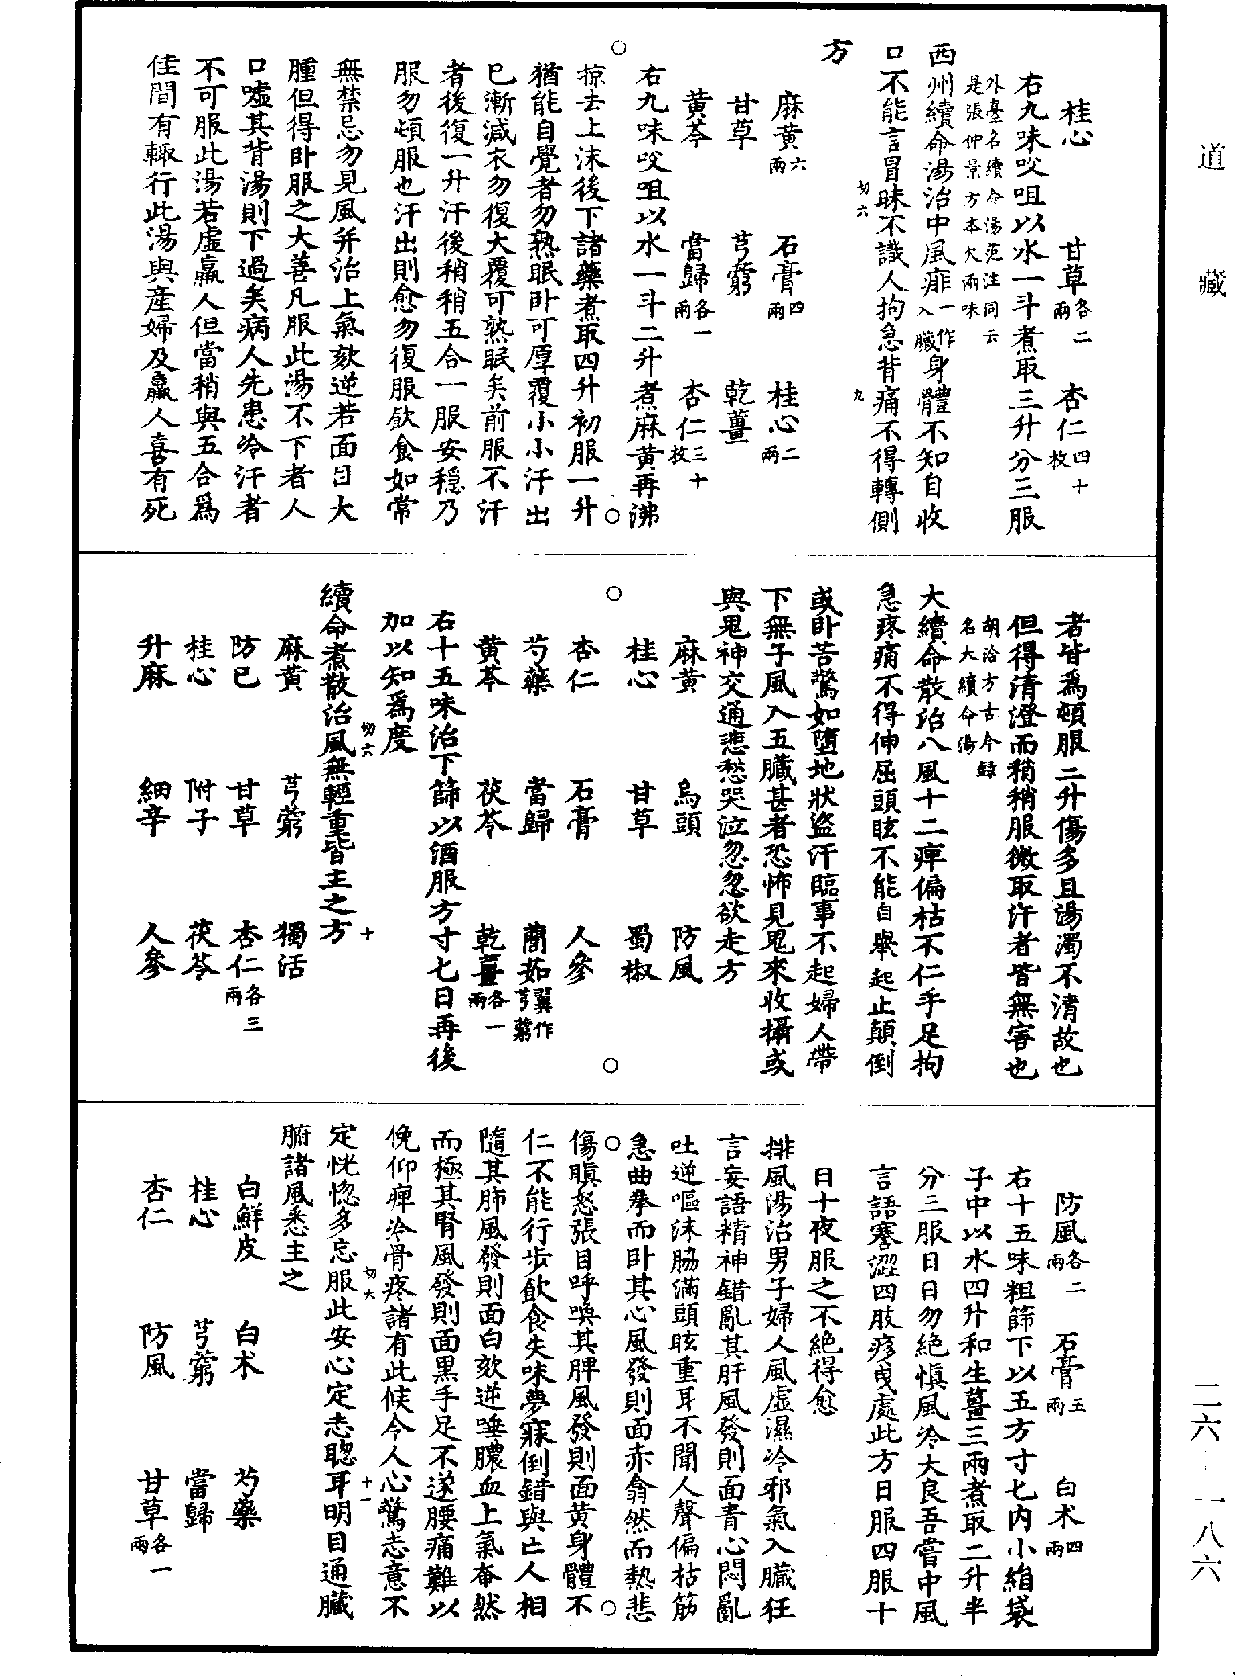 道藏
桂心　甘草各二兩　杏仁四十枚
右九味㕮咀以水一斗煮取三升分三服
外臺名續命湯范汪同云是張仲景方本欠兩味
西州續命湯治中風痱一作入臟身體不知自收
口不能言冒昧不識人拘急背痛不得轉側
方
切六　九
麻黃六兩　石膏四兩　桂心二兩
甘草　芎藭　乾薑
黃芩　當歸各一兩　杏仁三十枚
右九味㕮咀以水一斗二升煮麻黃再沸
掠去上沫後下諸藥煮取四升初服一升
猶能自覺者勿熟眠卧可厚覆小小汗出
已漸減衣勿復大覆可熟眠矣前服不汗
者後復一升汗後稍稍五合一服安穩乃
服勿頓服也汗出則愈勿復服飲食如常
無禁忌勿見風并治上氣欬逆若面目大
腫但得卧服之大善凡服此湯不下者人
口噓其背湯則下過矣病人先患冷汗者
不可服此湯若虛羸人但當稍與五合為
佳間有輒行此湯與產婦及羸人喜有死
者皆為頓服二升傷多且湯濁不清故也
但得清澄而稍稍服微取汗者皆無害也
胡洽方古今錄名大續命湯
大續命散治八風十二痺偏枯不仁手足拘
急疼痛不得伸屈頭眩不能自舉起止顛倒
或卧苦驚如墮地狀盜汗臨事不起婦人帶
下無子風入五臟甚者恐怖見鬼來收攝或
與鬼神交通悲愁哭泣忽忽欲走方
麻黃　烏頭　防風
桂心　甘草　蜀椒
杏仁　石膏　人參
芍藥　當歸　藺茹翼作芎藭
黃芩　茯苓　乾薑各一兩
右十五味治下篩以酒服方寸匕日再後
加以知為度
切六　十
續命煮散治風無輕重皆主之方
麻黃　芎藭　獨活
防已　甘草　杏仁各三兩
桂心　附子　茯苓
升麻　細辛　人參
防風各二兩　石膏五兩　白术四兩
右十五味粗篩下以五方寸匕內小絹袋
子中以水四升和生薑三兩煮取二升半
分三服日日勿絕慎風冷大良吾嘗中風
言語蹇澀四肢疹曳處此方日服四服十
日十夜服之不絕得愈
排風湯治男子婦人風虛濕冷邪氣入臟狂
言妄語精神錯亂其肝風發則面青心悶亂
吐逆嘔沫脇滿頭眩重耳不聞人聲偏枯筋
急曲拳而卧其心風發則面赤翕然而熱悲
傷瞋怒張目呼喚其脾風發則面黃身體不
仁不能行步飲食失味夢寐倒錯與亡人相
隨其肺風發則面白欬逆唾膿血上氣奄然
而極其腎風發則面黑手足不遂腰痛難以
俛仰痺冷骨疼諸有此候令人心驚志意不
切六　十一
定恍惚多忘服此安心定志聰耳明目通臟
腑諸風悉主之
白鮮皮　白术　芍藥
桂心　芎藭　當歸
杏仁　防風　甘草各一兩
二六‧一八六